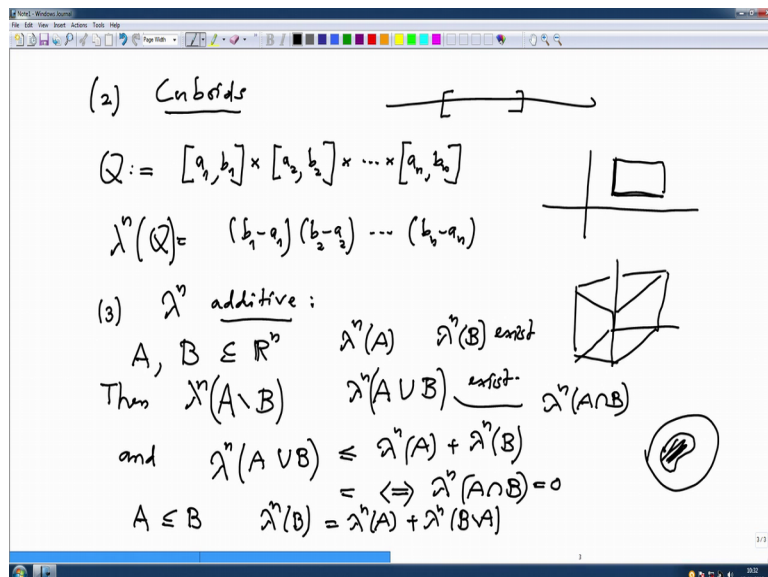 Note1 - Windows Journal
File Edit View Insert Actions Tools Help
Page Width
(2) Cuboids
Q := [a₁, b₁] × [a₂, b₂] × ⋯ × [aₙ, bₙ]
λⁿ(Q) = (b₁-a₁) (b₂-a₂) ⋯ (bₙ-aₙ)
(3) λⁿ additive :
A, B ⊆ ℝⁿ λⁿ(A) λⁿ(B) exist
Then λⁿ(A \ B) λⁿ(A ∪ B) exist. λⁿ(A ∩ B)
and λⁿ(A ∪ B) ≤ λⁿ(A) + λⁿ(B)
= ⇔ λⁿ(A ∩ B) = 0
A ⊆ B λⁿ(B) = λⁿ(A) + λⁿ(B \ A)
3/3
3
10:32